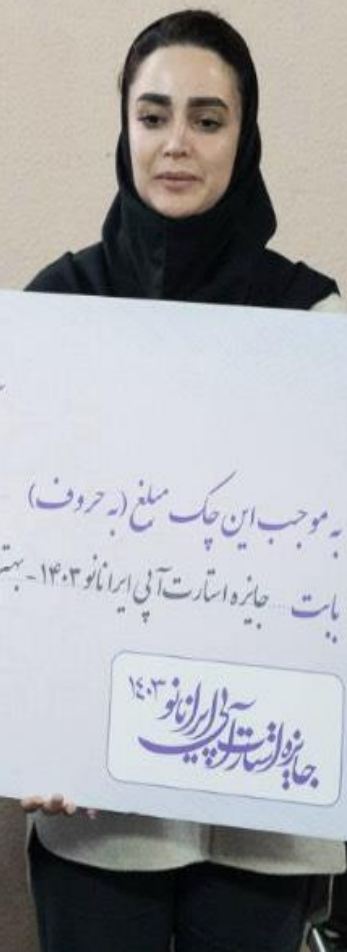 به موجب این چک مبلغ (به حروف)
بابت ... جایزه استارت آپی ایرانانو ۱۴۰۳ -
جایزه استارت آپی ایرانانو ۱۴۰۳